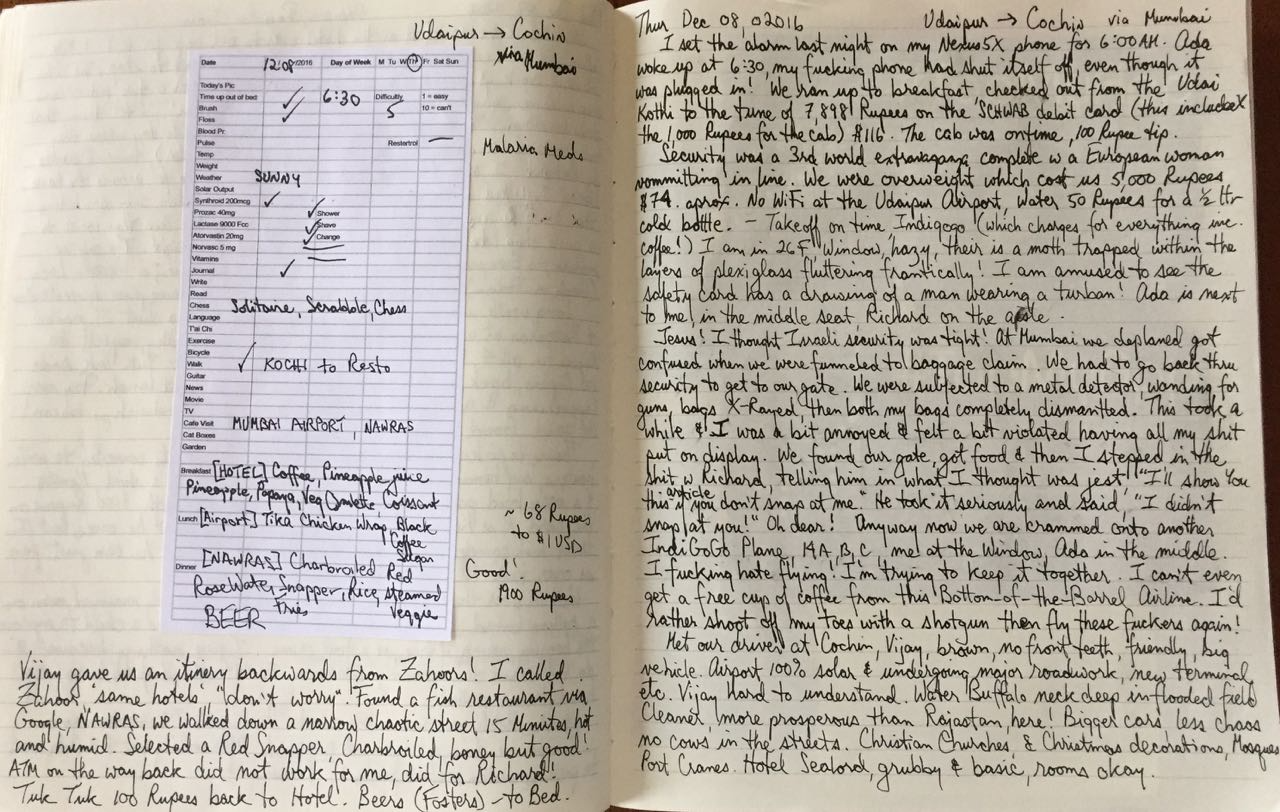 Udaipur → Cochin
via Mumbai
Date 12/08/2016 Day of Week M Tu W TH Fr Sat Sun
Today's Pic
Time up out of bed 6:30 Difficulty 1 = easy
Brush 5 10 = can't
Floss
Blood Pr.
Pulse Restertrol —
Temp
Malaria Meds
Weight
Weather SUNNY
Solar Output
Synthroid 200mcg
Prozac 40mg Shower
Lactase 9000 Fcc Shave
Atorvastin 20mg Change
Norvasc 5 mg
Vitamins
Journal
Write
Read
Chess Solitaire, Scrabble, Chess
Language
T'ai Chi
Exercise
Bicycle
Walk KOCHI to Resto
Guitar
News
Movie
TV
Cafe Visit MUMBAI AIRPORT, NAWRAS
Cat Boxes
Garden
Breakfast [HOTEL] Coffee, Pineapple juice
Pineapple, Papaya, Veg Omlette Coissant
Lunch [Airport] Tika Chicken Wrap, Black
Coffee
~ 68 Rupees
to $1 USD
Dinner [NAWRAS] Charbroiled Red
Rose Water, Snapper, Rice, steamed
Fries Veggie
BEER
Good!
1900 Rupees
Vijay gave us an itinery backwards from Zahoors! I called
Zahoor "same hotels" "don't worry". Found a fish restaurant via
Google, NAWRAS, we walked down a narrow chaotic street 15 Minutes, hot
and humid. Selected a Red Snapper, Charbroiled, boney but good!
ATM on the way back did not work for me, did for Richard!
Tuk Tuk 100 Rupees back to Hotel. Beers (Fosters) - to Bed.
Thur Dec 08, 02016 Udaipur → Cochin via Mumbai
I set the alarm last night on my Nexus 5X phone for 6:00 AM. Ada
woke up at 6:30, my fucking phone had shut itself off, even though it
was plugged in! We ran up to breakfast, checked out from the Udai
Kothi to the tune of 7,898 Rupees on the SCHWAB debit card (this includes
the 1,000 Rupees for the cab) $116. The cab was ontime, 100 Rupee tip.
Security was a 3rd world extravagana complete w a European woman
vommitting in line. We were overweight which cost us 5,000 Rupees
$74. aprox. No WiFi at the Udaipur Airport, Water 50 Rupees for a ½ ltr
cold bottle. - Takeoff on time Indigogo (which charges for everything inc.
coffee!) I am in 26F, Window, hazy, their is a moth trapped within the
layers of plexiglass fluttering frantically! I am amused to see the
safety card has a drawing of a man wearing a turban! Ada is next
to me, in the middle seat, Richard on the aisle.
Jesus! I thought Israeli security was tight! At Mumbai we deplaned got
confused when we were funneled to baggage claim. We had to go back thru
security to get to our gate. We were subjected to a metal detector, wanding for
guns, bags X-Rayed, then both my bags completely dismantled. This took a
while & I was a bit annoyed & felt a bit violated having all my shit
put on display. We found our gate, got food & then I stepped in the
shit w Richard, telling him in what I thought was jest "I'll show you
this article if you don't snap at me." He took it seriously and said, "I didn't
snap at you!" Oh dear! Anyway now we are crammed onto another
IndiGoGo Plane, 14 A, B, C, me at the Window, Ada in the middle.
I fucking hate flying! I'm trying to keep it together. I can't even
get a free cup of coffee from this Bottom-of-the-Barrel Airline. I'd
rather shoot off my toes with a shotgun then fly these fuckers again!
Met our driver at Cochin, Vijay, brown, no front teeth, friendly, big
vehicle. Airport 100% solar & undergoing major roadwork, new terminal,
etc. Vijay hard to understand. Water Buffalo neck deep in flooded field
Cleaner, more prosperous than Rajastan, here! Bigger cars, less chaos
no cows in the streets. Christian Churches, & Christmas decorations, Mosques
Port Cranes. Hotel Sealord, grubby & basic, rooms okay.